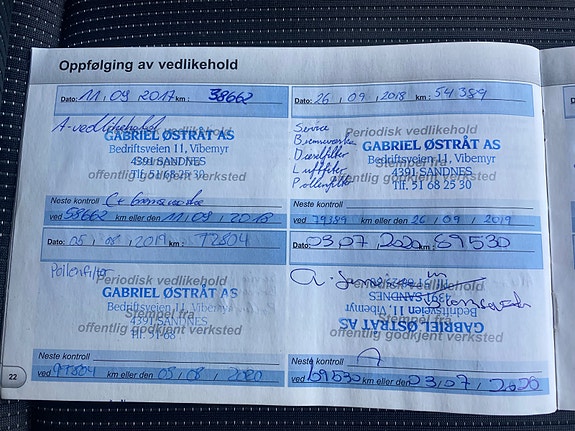 Oppfølging av vedlikehold
Dato: 11, 09, 2017 km: 38662
A-vedlikehold
Periodisk vedlikehold
GABRIEL ØSTRÅT AS
Bedriftsveien 11, Vibemyr
4391 SANDNES
Tlf. 51 68 25 30
offentlig godkjent verksted
Neste kontroll
ved 58662 km eller den 11, 09, 2018
Dato: 26, 09, 2018 km: 54389
Service
Bremsevæske
Dieselfilter
Luftfilter
Pollenfilter
Periodisk vedlikehold
GABRIEL ØSTRÅT AS
Bedriftsveien 11, Vibemyr
Stempel fra
4391 SANDNES
offentlig godkjent verksted
Tlf. 51 68 25 30
Neste kontroll
ved 79389 km eller den 26, 09, 2019
Dato: 05, 08, 2019 km: 72804
Pollenfilter
Periodisk vedlikehold
GABRIEL ØSTRÅT AS
Bedriftsveien 11, Vibemyr
Stempel fra
4391 SANDNES
offentlig godkjent verksted
Tlf. 51 68
Neste kontroll
ved km eller den 05, 08, 2020
Dato: 03, 07, 2020 km: 89530
A-
m
Tlf. 51 68 25 30
4391 SANDNES
Bedriftsveien 11, Vibemyr
GABRIEL ØSTRÅT AS
offentlig godkjent verksted
Neste kontroll
A
ved km eller den 03, 07, 2020
22